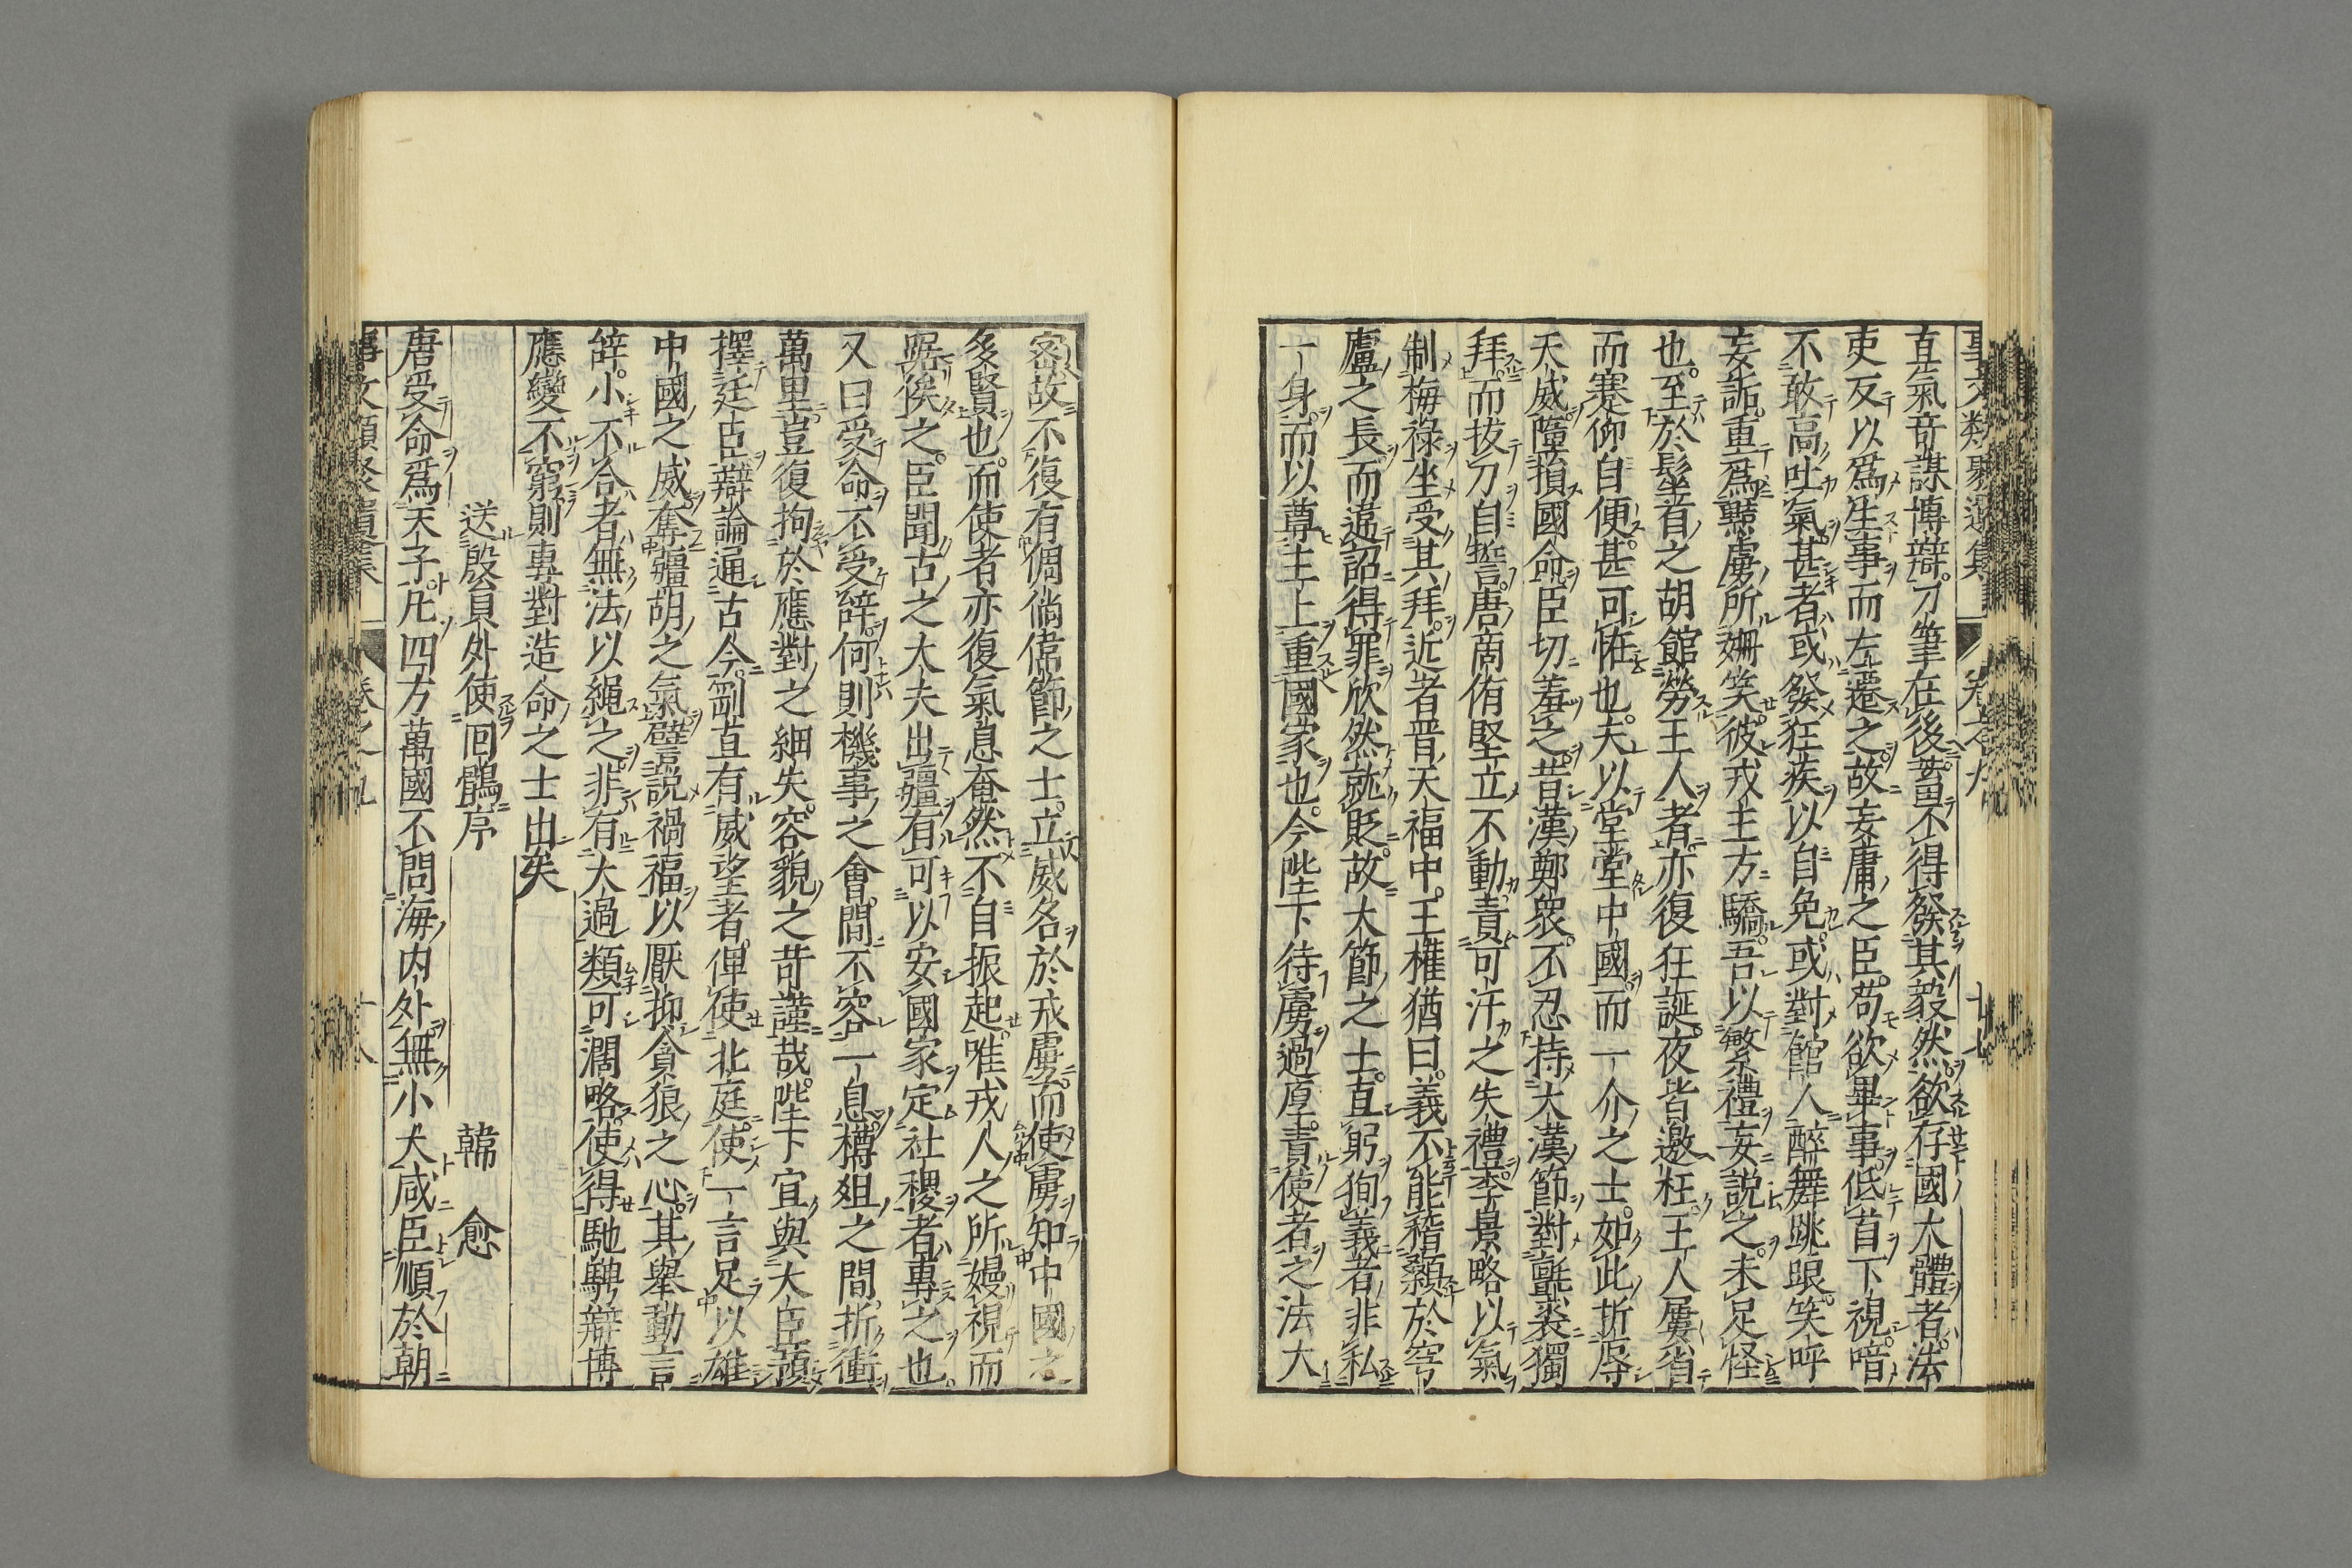 直氣奇謀博辯才筆在後蓄不得發其毅然欲存國大體者法
吏反以爲生事而左遷之故妄庸之臣苟欲畢事低首下視喑
不敢高吐氣甚者或發狂疾以自免或對館人醉舞跳踉笑呼
妄詬重爲黠虜所姍笑彼戎主方驕吾以繁禮妄說之未足怪
也至於髽首之胡館勞王人者亦復狂誕夜皆邀枉王人屢省
而蹇仰自便甚可恠也夫以堂堂中國而一介之士如此折辱
天威隳損國命臣切羞之昔漢鄭衆不忍持大漢節對氈裘獨
拜而拔刀自誓唐啇侑堅立不動責可汗之失禮李景略以氣
制梅祿坐受其拜近者晋天福中王權猶曰義不能稽顙於穹
廬之長而違詔得罪欣然就貶故大節之士直躬狥義者非私
一身而以尊主上重國家也今陛下待虜過厚責使者之法大
密故不復有倜儻偉節之士立威名於戎虜而使虜知中國之
多賢也而使者亦復氣息奄然不自振起唯戎人之所嫚視而
踞俟之臣聞古之大夫出疆有可以安國家定社稷者專之也
又曰受命不受辭何則機事之會間不容一息樽俎之間折衝
萬里豈復拘於應對之細失容貌之苛謹哉陛下宜與大臣預
擇廷臣辯論通古今剛直有威望者俾使北庭使一言足以雄
中國之威奪疆胡之氣譬說禍福以厭抑貪狼之心其舉動言
辞小不合者無法以繩之非有大過類可濶略使得馳騁辯博
應變不窮則專對造命之士出矣
送殷員外使囘鶻序 韓愈
唐受命爲天子凢四方萬國不問海内外無小大咸臣順於朝
事文類聚遺集 卷之九 十八